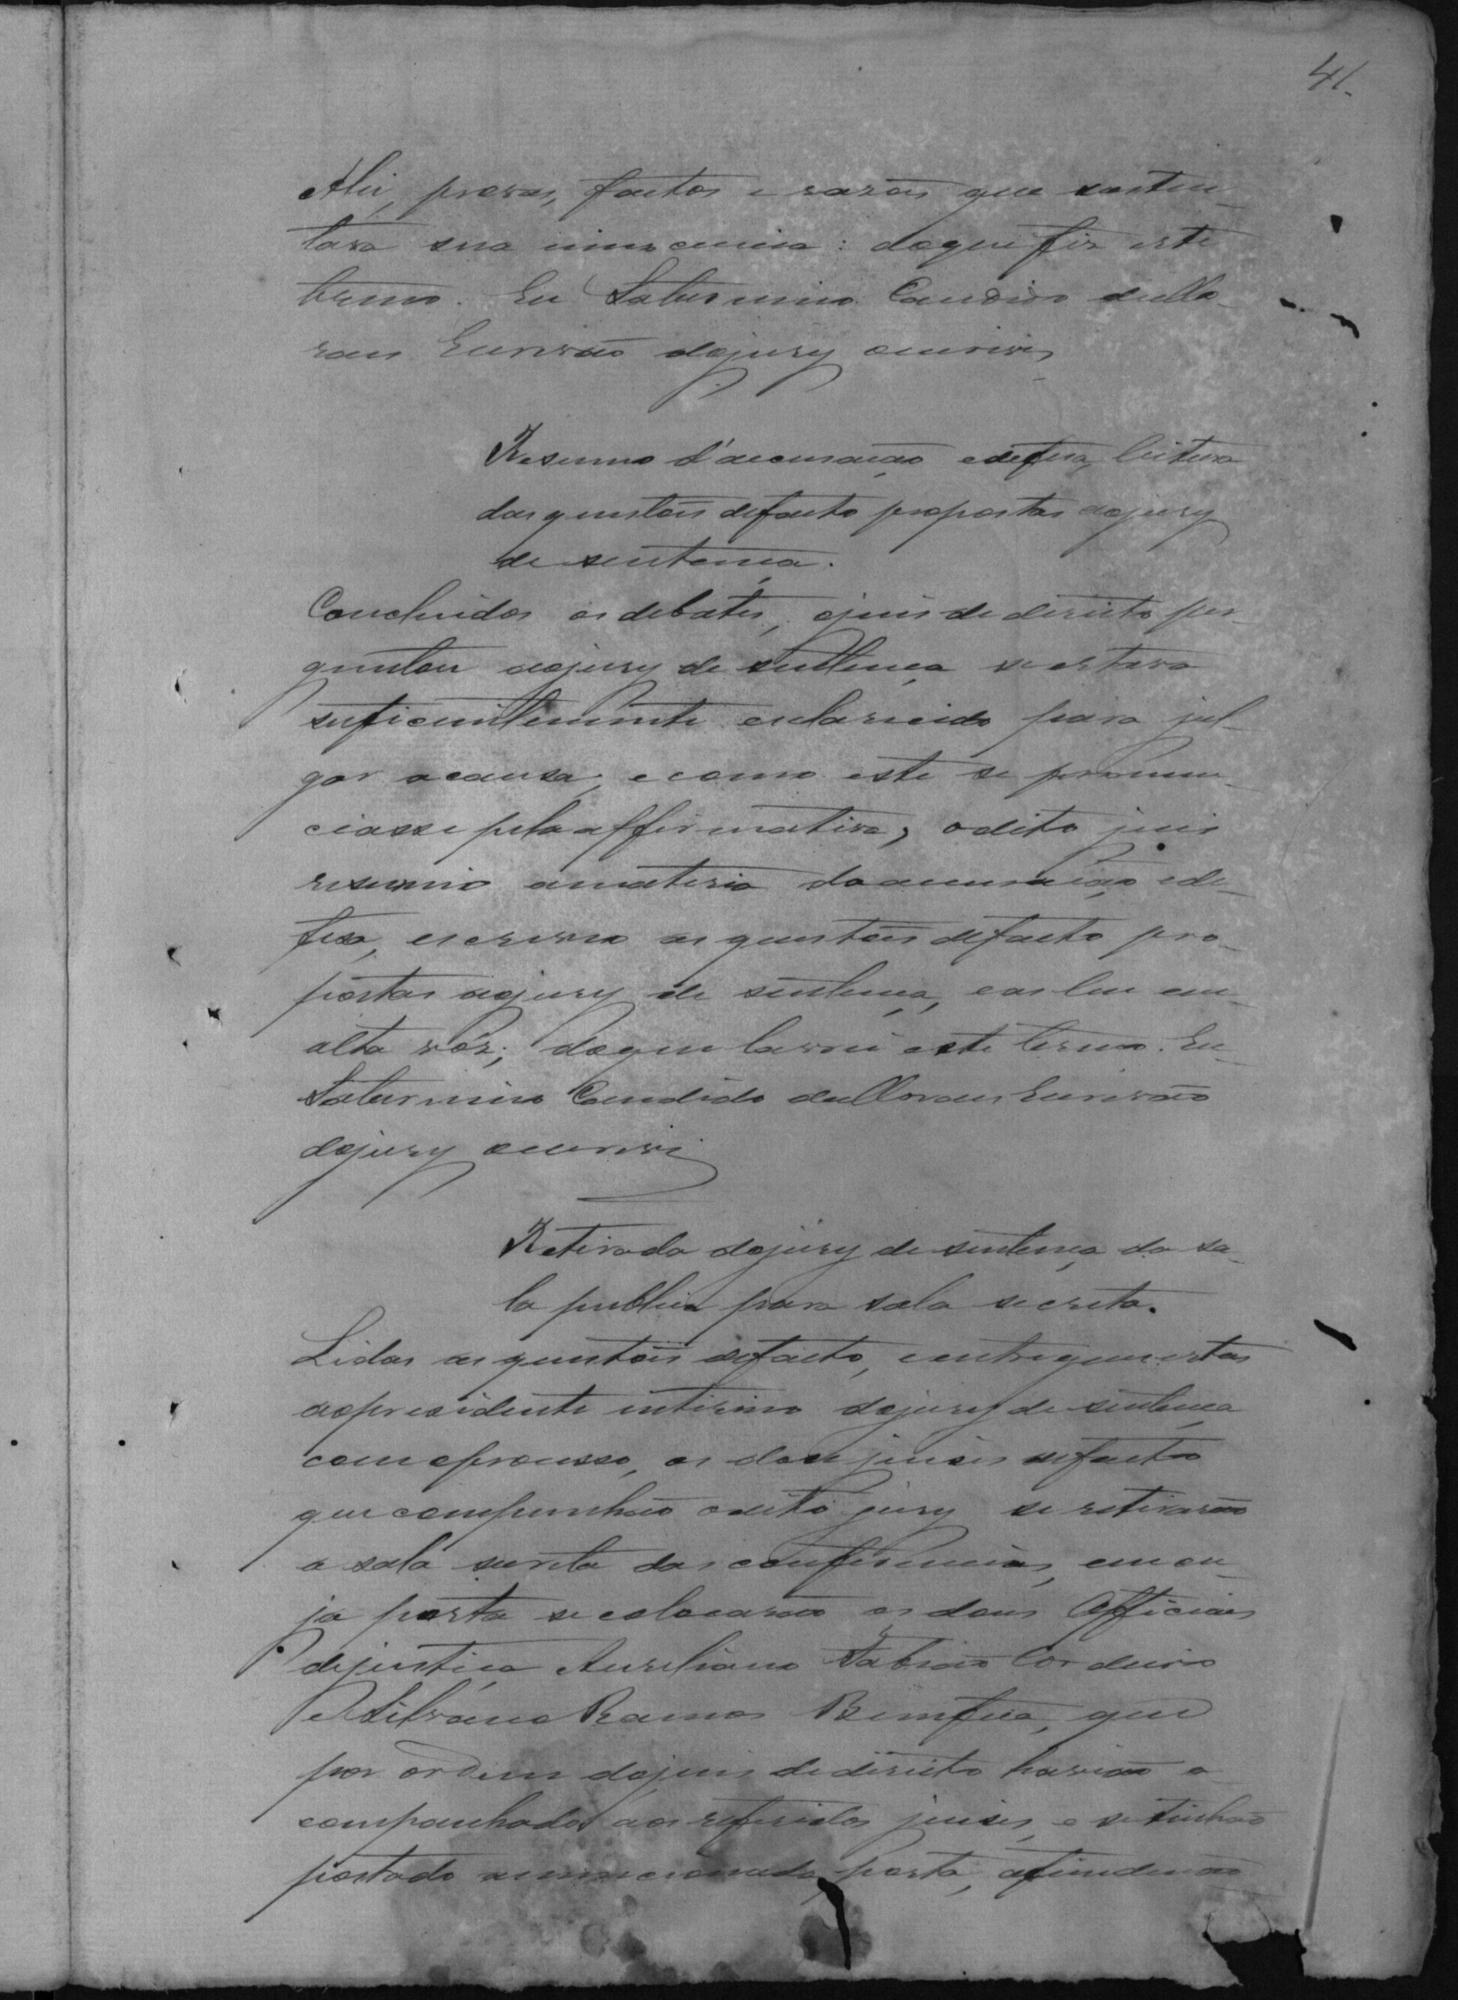 41.
provas, factos e razões que susten-
tava sua innocencia: do que fiz este
termo. Eu Saturnino Candido de Mo-
raes Escrivão do jury escrivi
Resumo d'accusação e defesa, leitura
das questões de facto propostas ao jury
de sentença.
Concluidos os debates, o juis de direito per-
guntou ao jury de sentença se estava
suficientimente esclarecido para jul-
gar a causa, e como este se pronun-
ciasse pela affirmativa, o dito juis
resumio a materia da accusação e de-
fesa, escreveo as questões de facto pro-
postas ao jury de sentença, e as leu em
alta vóz; do que lavrei este termo. Eu
Saturnino Candido de Moraes Escrivão
do jury escrivi
Retirada do jury de sentença da sa-
la publica para sala secreta.
Lidas as questões de facto, e entregues estas
ao presidente interino do jury de sentença
com o processo, os dose juises de facto
que compunhão o dito jury se retirarão
a sala secreta das conferencias, em cu-
ja porta se colocarão os dous Officiaes
de justiça Aureliano Fabião Cordeiro
e Silvano Ramos Bemfica, que
por ordem do juis de direito havião a-
companhado aos referidos juises, e se tinhão
postado a mencionada porta, a fim de não